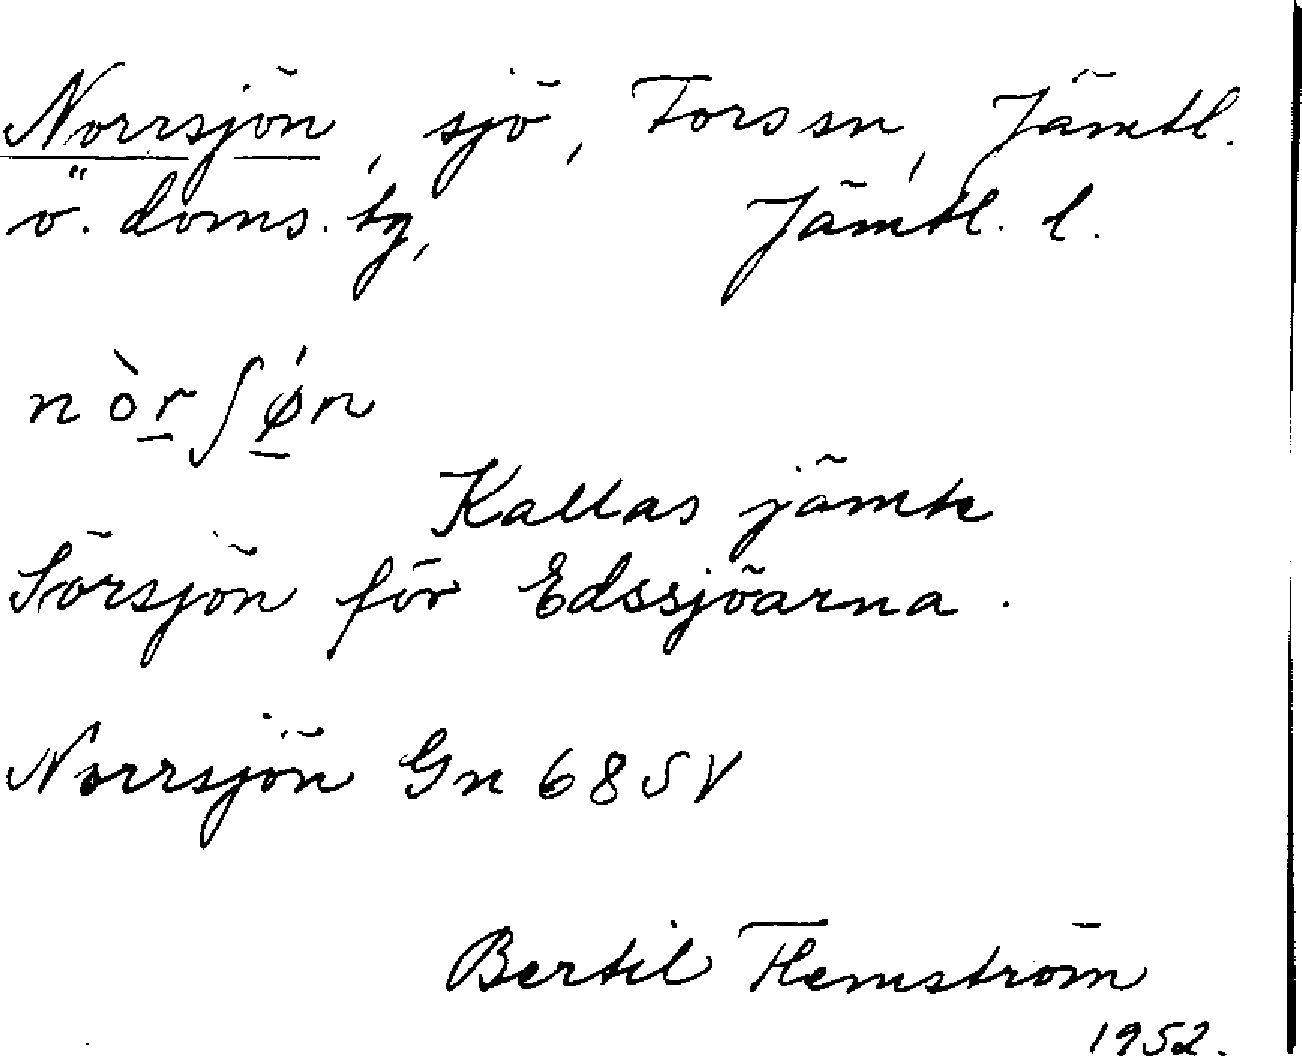 Norrsjön, sjö, Fors sn, Jämtl.
ö. doms. tg, Jämtl. l.
nòrʃǿn
Kallas jämte
Sörsjön för Edssjöarna.
Norrsjön Gn 68 SV
Bertil Flemström
1952.